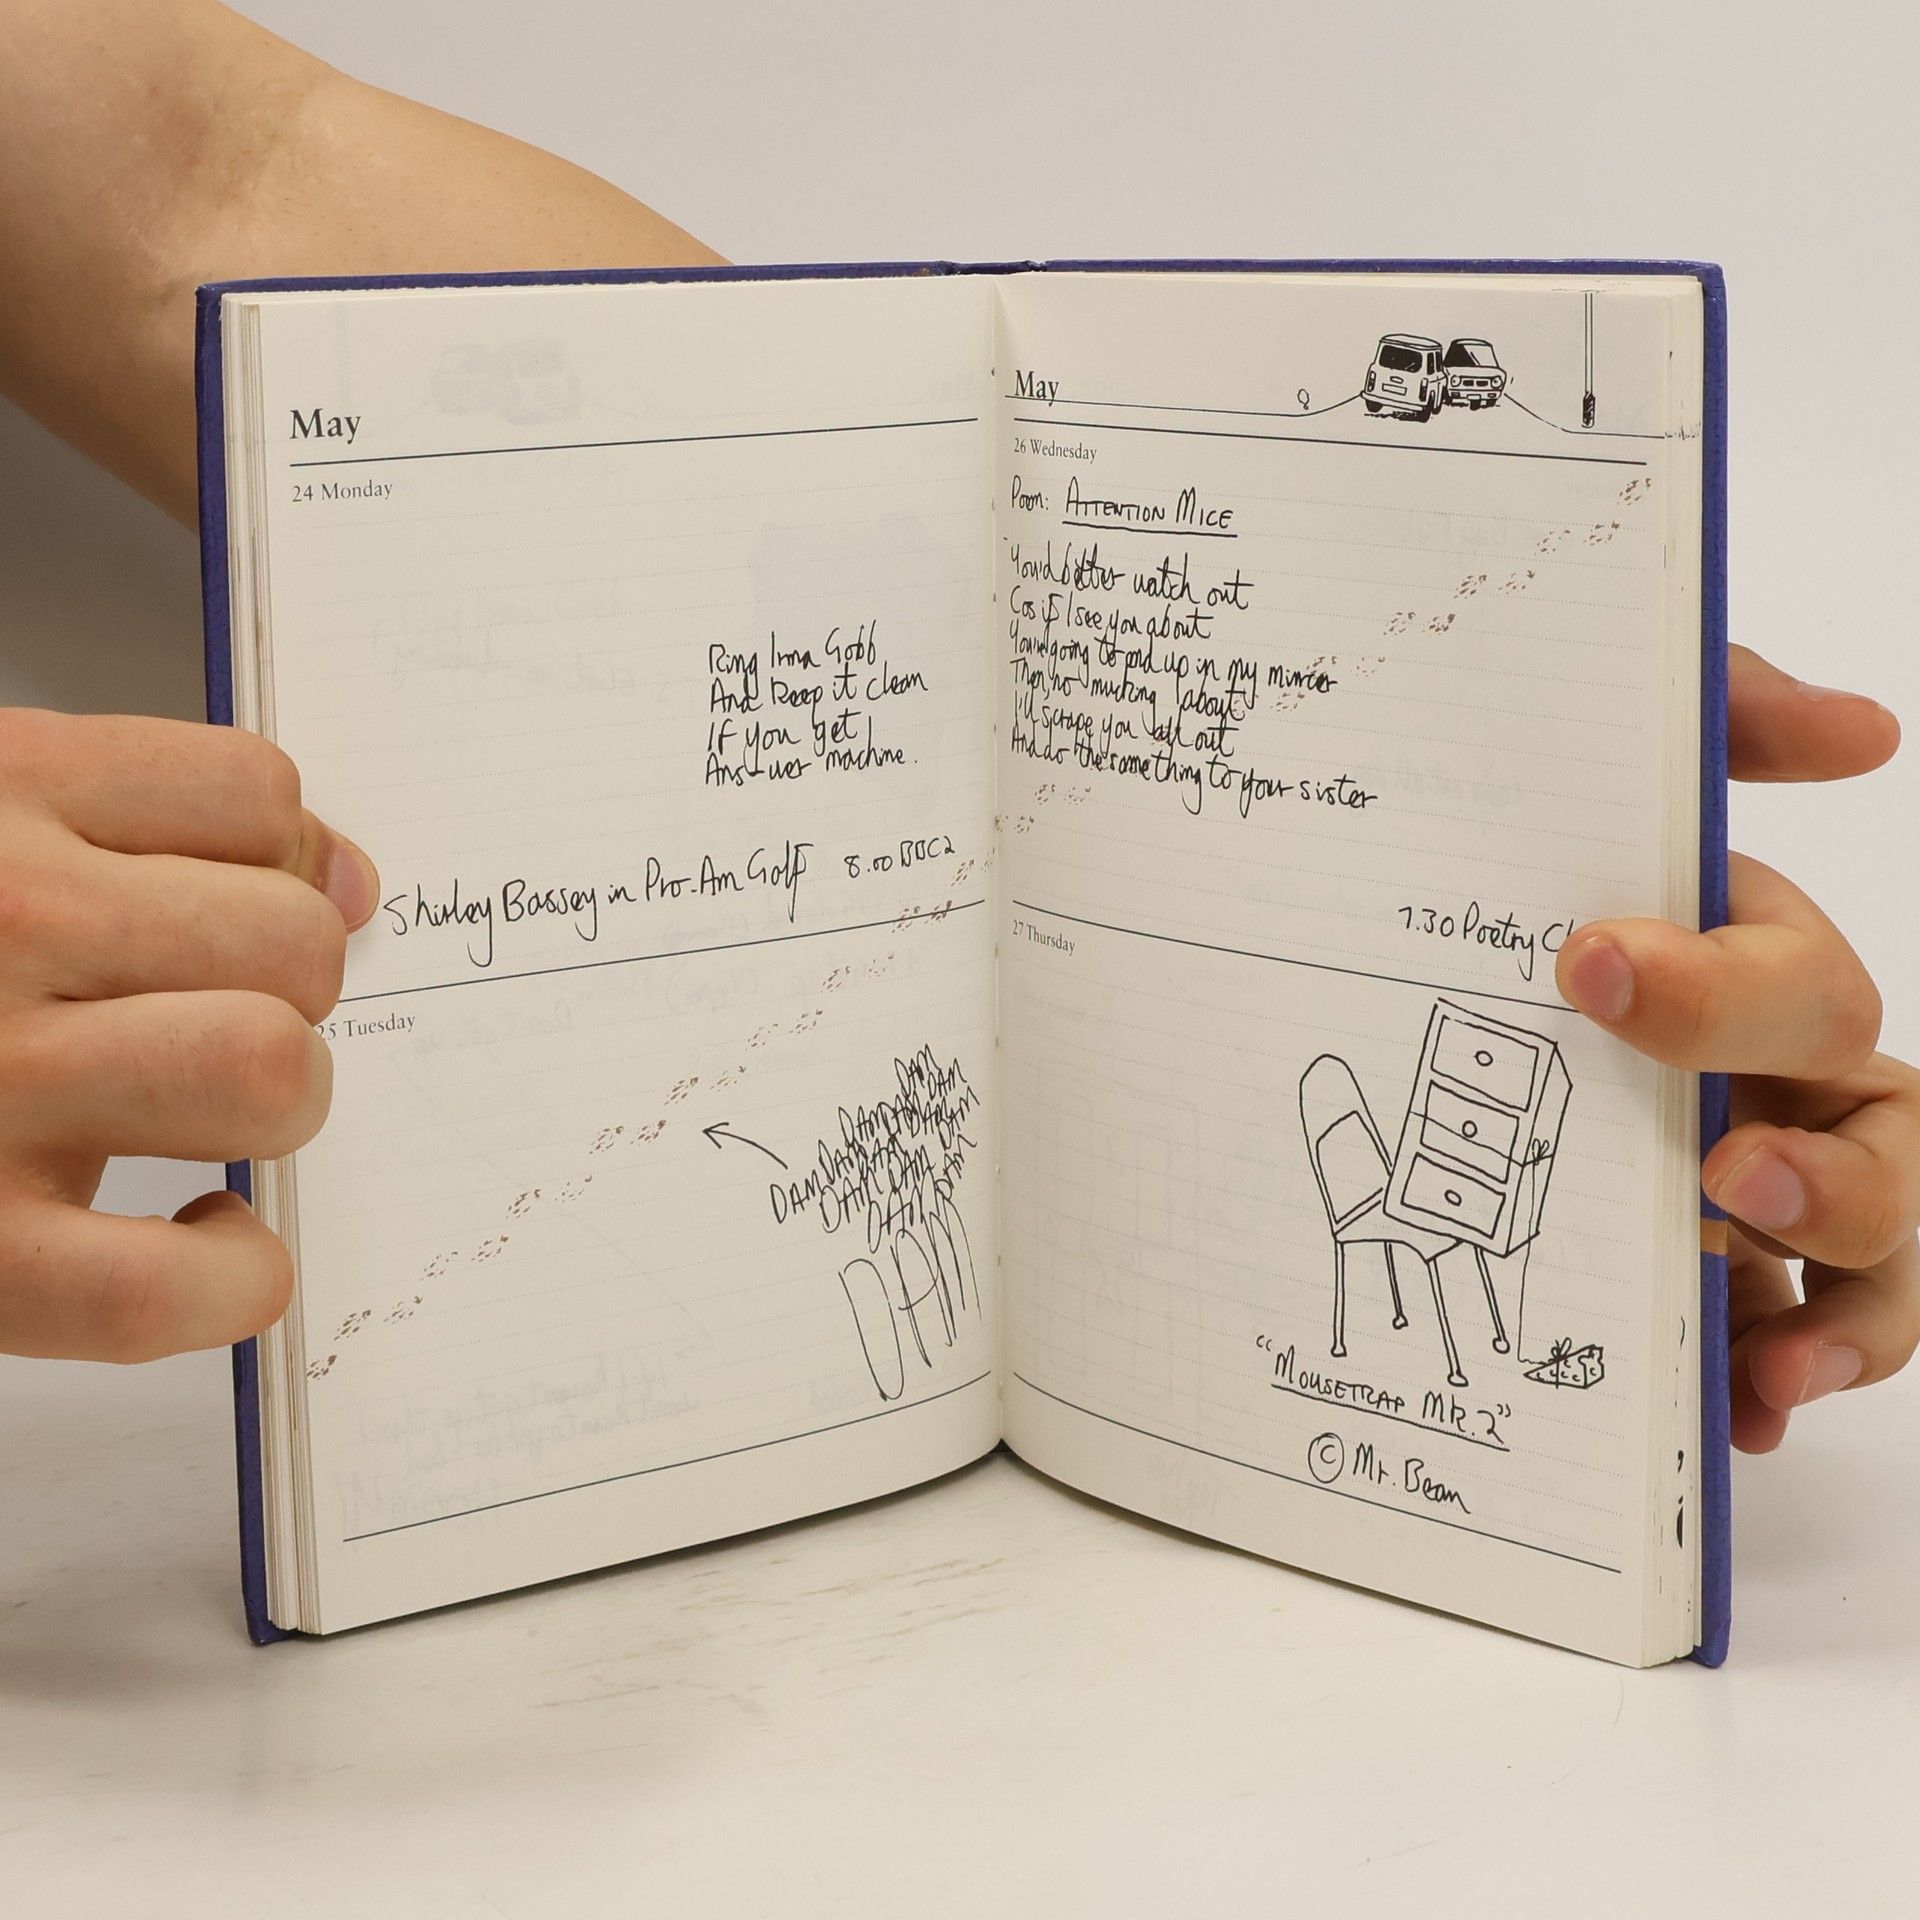 May
24 Monday
Ring Irma Gobb
And keep it clean
If you get
Ans-wer machine.
Shirley Bassey in Pro-Am Golf 8.00 BBC2
25 Tuesday
DAM
DAM DAM
DAM DAM DAM
DAM DAM DAM
DAM DAM DAM
DAM
DAM
May
26 Wednesday
Poem: ATTENTION MICE
You'd better watch out
Cos if I see you about
You're going to end up in my mincer
Then, no mucking about
I'll scrape you all out
And do the same thing to your sister
7.30 Poetry
27 Thursday
"MOUSETRAP MK.2"
© Mr. Bean